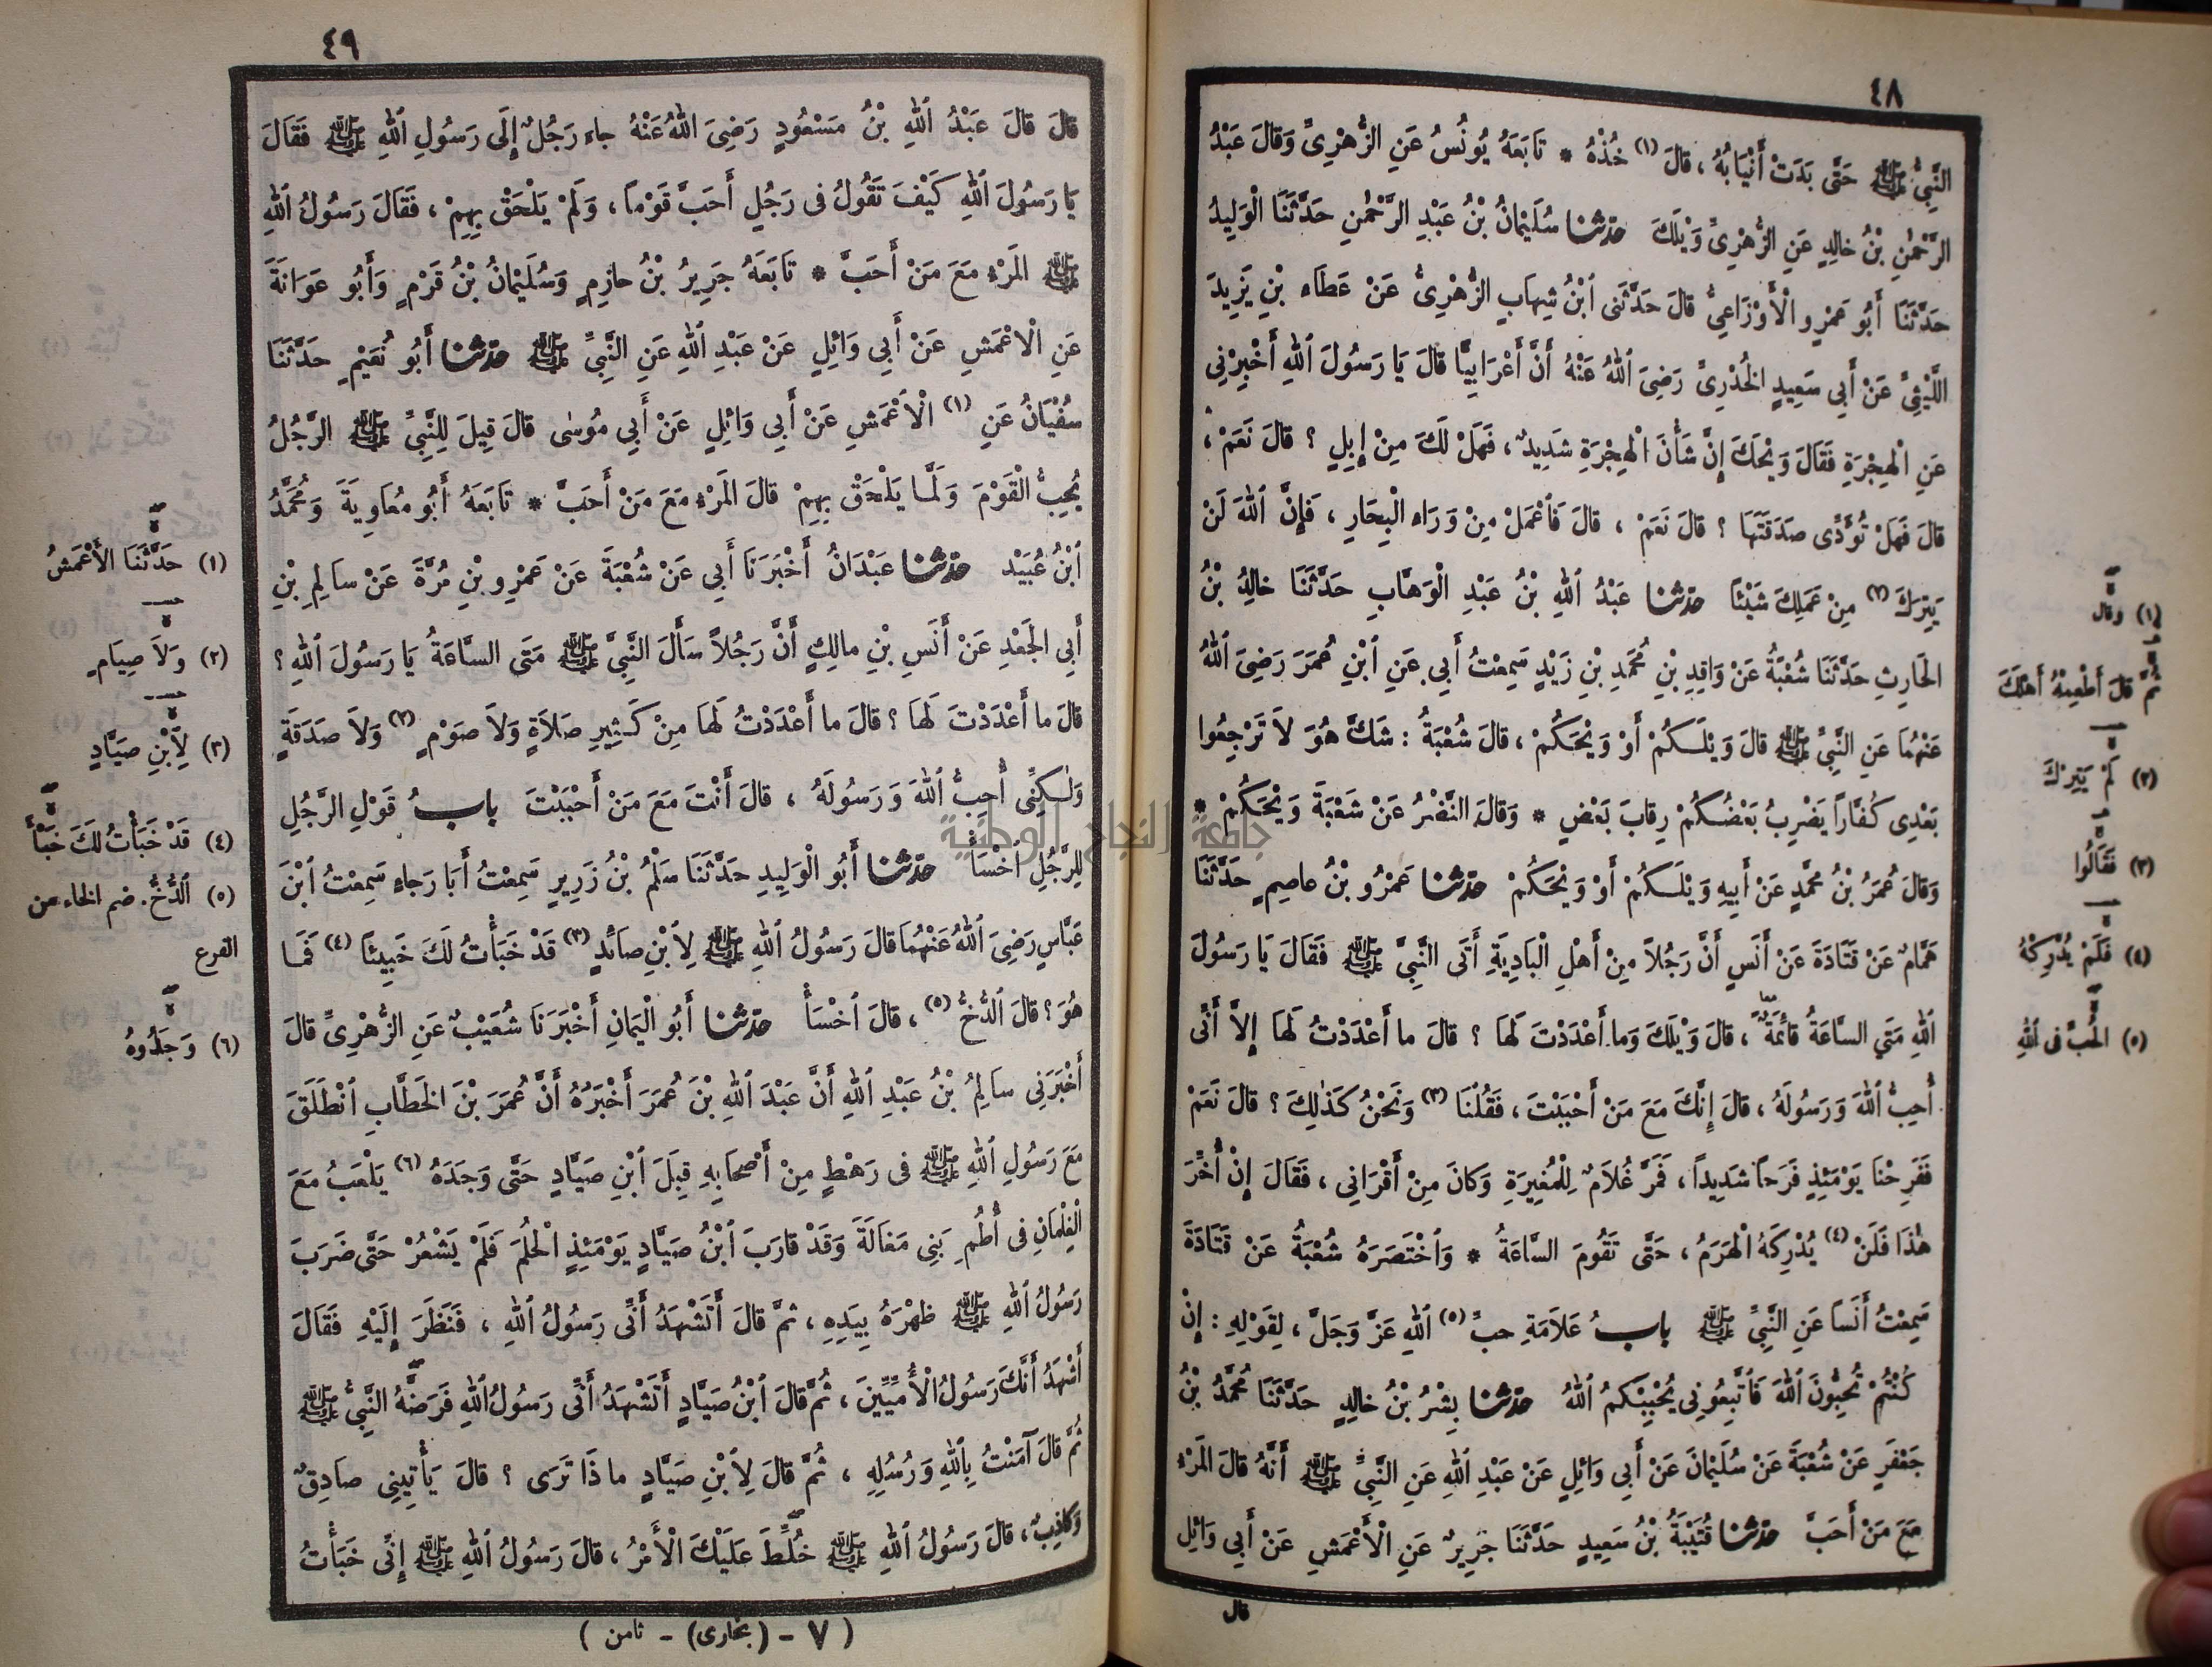 ٤٨
النَّبِيُّ ﷺ حَتَّى بَدَتْ أَنْيَابُهُ ، قالَ (١) خُذْهُ * تَابَعَهُ يُونُسُ عَنِ الزُّهْرِيِّ وَقالَ عَبْدُ
الرَّحْمٰنِ بْنُ خالِدٍ عَنِ الزُّهْرِيِّ وَيْلَكَ حدثنا سُلَيْمانُ بْنُ عَبْدِ الرَّحْمٰنِ حَدَّثَنَا الْوَلِيدُ
حَدَّثَنَا أَبُو عَمْرٍو الْأَوْزَاعِيُّ قالَ حَدَّثَنِي ابْنُ شِهَابٍ الزُّهْرِيُّ عَنْ عَطَاءِ بْنِ يَزِيدَ
اللَّيْثِيِّ عَنْ أَبِي سَعِيدٍ الخُدْرِيِّ رَضِيَ اللهُ عَنْهُ أَنَّ أَعْرَابِيًّا قالَ يَا رَسُولَ اللهِ أَخْبِرْنِي
عَنِ الْهِجْرَةِ فَقَالَ وَيْحَكَ إِنَّ شَأْنَ الْهِجْرَةِ شَدِيدٌ ، فَهَلْ لَكَ مِنْ إِبِلٍ ؟ قالَ نَعَمْ ،
قالَ فَهَلْ تُؤَدِّى صَدَقَتَهَا ؟ قالَ نَعَمْ ، قالَ فَاعْمَلْ مِنْ وَرَاءِ الْبِحَارِ ، فَإِنَّ اللهَ لَنْ
يَتِرَكَ (٢) مِنْ عَمَلِكَ شَيْئًا حدثنا عَبْدُ اللهِ بْنُ عَبْدِ الْوَهَّابِ حَدَّثَنَا خالِدُ بْنُ
الحَارِثِ حَدَّثَنَا شُعْبَةُ عَنْ وَاقِدِ بْنِ مُحَمَّدِ بْنِ زَيْدٍ سَمِعْتُ أَبِي عَنِ ابْنِ عُمَرَ رَضِيَ اللهُ
عَنْهُما عَنِ النَّبِيِّ ﷺ قالَ وَيْلَكُمْ أَوْ وَيْحَكُمْ ، قالَ شُعْبَةُ : شَكَّ هُوَ لاَ تَرْجِعُوا
بَعْدِى كُفَّارًا يَضْرِبُ بَعْضُكُمْ رِقابَ بَعْضٍ * وَقالَ النَّضْرُ عَنْ شُعْبَةَ وَيْحَكُمْ *
وَقالَ عُمَرُ بْنُ مُحَمَّدٍ عَنْ أَبِيهِ وَيْلَكُمْ أَوْ وَيْحَكُمْ حدثنا عَمْرُو بْنُ عاصِمٍ حَدَّثَنَا
هَمَّامٌ عَنْ قَتَادَةَ عَنْ أَنَسٍ أَنَّ رَجُلاً مِنْ أَهْلِ الْبَادِيَةِ أَتَى النَّبِيَّ ﷺ فَقَالَ يَا رَسُولَ
اللهِ مَتَى السَّاعَةُ قائِمَةٌ ، قالَ وَيْلَكَ وَما أَعْدَدْتَ لَهَا ؟ قالَ ما أَعْدَدْتُ لَهَا إِلاَّ أَنِّى
أُحِبُّ اللهَ وَرَسُولَهُ ، قالَ إِنَّكَ مَعَ مَنْ أَحْبَبْتَ ، فَقُلْنَا (٣) وَنَحْنُ كَذٰلِكَ ؟ قالَ نَعَمْ
فَفَرِحْنَا يَوْمَئِذٍ فَرَحاً شَدِيداً ، فَمَرَّ غُلاَمٌ لِلْمُغِيرَةِ وَكانَ مِنْ أَقْرَانِي ، فَقَالَ إِنْ أُخِّرَ
هٰذَا فَلَنْ (٤) يُدْرِكَهُ الْهَرَمُ ، حَتَّى تَقُومَ السَّاعَةُ * وَاخْتَصَرَهُ شُعْبَةُ عَنْ قَتَادَةَ
سَمِعْتُ أَنَساً عَنِ النَّبِيِّ ﷺ باب عَلاَمَةِ حبِّ (٥) اللهِ عَزَّ وَجَلَّ ، لِقَوْلِهِ : إِنْ
كُنْتُمْ تُحِبُّونَ اللهَ فَاتَّبِعُونِى يُحْبِبْكُمُ اللهُ حدثنا بِشْرُ بْنُ خالِدٍ حَدَّثَنَا مُحَمَّدُ بْنُ
جَعْفَرٍ عَنْ شُعْبَةَ عَنْ سُلَيْمَانَ عَنْ أَبِي وَائِلٍ عَنْ عَبْدِ اللهِ عَنِ النَّبِيِّ ﷺ أَنَّهُ قالَ المَرْءُ
مَعَ مَنْ أَحَبَّ حدثنا قُتَيْبَةُ بْنُ سَعِيدٍ حَدَّثَنَا جَرِيرٌ عَنِ الْأَعْمَشِ عَنْ أَبِي وَائِلٍ
قال
(١) وقال
ثُمَّ قالَ أَطْعِمْهُ أَهْلَكَ
(٢) لَمْ يَتِرْكَ
(٣) فَقَالُوا
(٤) فَلَمْ يُدْرِكْهُ
(٥) الحُبِّ فى اللهِ
٤٩
قالَ قالَ عَبْدُ اللهِ بْنُ مَسْعُودٍ رَضِيَ اللهُ عَنْهُ جاءَ رَجُلٌ إِلَى رَسُولِ اللهِ ﷺ فَقَالَ
يَا رَسُولَ اللهِ كَيْفَ تَقُولُ فى رَجُلٍ أَحَبَّ قَوْماً ، وَلَمْ يَلْحَقْ بِهِمْ ، فَقَالَ رَسُولُ اللهِ
ﷺ المَرْءُ مَعَ مَنْ أَحَبَّ * تَابَعَهُ جَرِيرُ بْنُ حازِمٍ وَسُلَيْمانُ بْنُ قَرْمٍ وَأَبُو عَوَانَةَ
عَنِ الْأَعْمَشِ عَنْ أَبِي وَائِلٍ عَنْ عَبْدِ اللهِ عَنِ النَّبِيِّ ﷺ حدثنا أَبُو نُعَيْمٍ حَدَّثَنَا
سُفْيَانُ عَنِ (١) الْأَعْمَشِ عَنْ أَبِي وَائِلٍ عَنْ أَبِي مُوسٰى قالَ قِيلَ لِلنَّبِيِّ ﷺ الرَّجُلُ
يُحِبُّ الْقَوْمَ وَلَمَّا يَلْحَقْ بِهِمْ قالَ المَرْءُ مَعَ مَنْ أَحَبَّ * تَابَعَهُ أَبُو مُعَاوِيَةَ وَمُحَمَّدُ
ابْنُ عُبَيْد حدثنا عَبْدَانُ أَخْبَرَنَا أَبِي عَنْ شُعْبَةَ عَنْ عَمْرِو بْنِ مُرَّةَ عَنْ سالِمِ بْنِ
أَبِي الجَعْدِ عَنْ أَنَسِ بْنِ مالِكٍ أَنَّ رَجُلاً سَأَلَ النَّبِيَّ ﷺ مَتَى السَّاعَةُ يَا رَسُولَ اللهِ ؟
قالَ ما أَعْدَدْتَ لَهَا ؟ قالَ ما أَعْدَدْتُ لَهَا مِنْ كَثِيرِ صَلاَةٍ وَلاَ صَوْمٍ (٢) وَلاَ صَدَقَةٍ
وَلٰكِنِّى أُحِبُّ اللهَ وَرَسُولَهُ ، قالَ أَنْتَ مَعَ مَنْ أَحْبَبْتَ باب قَوْلِ الرَّجُلِ
لِلرَّجُلِ اخْسَأْ حدثنا أَبُو الْوَلِيدِ حَدَّثَنَا سَلْمُ بْنُ زَرِيرٍ سَمِعْتُ أَبَا رَجاءٍ سَمِعْتُ ابْنَ
عَبَّاسٍ رَضِيَ اللهُ عَنْهُما قالَ رَسُولُ اللهِ ﷺ لِابْنِ صائِدٍ (٣) قَدْ خَبَأْتُ لَكَ خَبِيئاً (٤) فَمَا
هُوَ ؟ قالَ الدُّخُّ (٥) ، قالَ اخْسَأْ حدثنا أَبُو الْيَمَانِ أَخْبَرَنَا شُعَيْبٌ عَنِ الزُّهْرِيِّ قالَ
أَخْبَرَنِي سالِمُ بْنُ عَبْدِ اللهِ أَنَّ عَبْدَ اللهِ بْنَ عُمَرَ أَخْبَرَهُ أَنَّ عُمَرَ بْنَ الخَطَّابِ انْطَلَقَ
مَعَ رَسُولِ اللهِ ﷺ فى رَهْطٍ مِنْ أَصْحَابِهِ قِبَلَ ابْنِ صَيَّادٍ حَتَّى وَجَدَهُ (٦) يَلْعَبُ مَعَ
الْغِلْمَانِ فى أُطُمِ بَنِي مَغَالَةَ وَقَدْ قارَبَ ابْنُ صَيَّادٍ يَوْمَئِذٍ الْحُلُمَ فَلَمْ يَشْعُرْ حَتَّى ضَرَبَ
رَسُولُ اللهِ ﷺ ظَهْرَهُ بِيَدِهِ ، ثمَّ قالَ أَتَشْهَدُ أَنِّى رَسُولُ اللهِ ، فَنَظَرَ إِلَيْهِ فَقَالَ
أَشْهَدُ أَنَّكَ رَسُولُ الْأُمِّيِّينَ ، ثُمَّ قالَ ابْنُ صَيَّادٍ أَتَشْهَدُ أَنِّى رَسُولُ اللهِ فَرَضَّهُ النَّبِيُّ ﷺ
ثُمَّ قالَ آمَنْتُ بِاللهِ وَرُسُلِهِ ، ثُمَّ قالَ لِابْنِ صَيَّادٍ ما ذَا تَرَى ؟ قالَ يَأْتِينِى صادِقٌ
وَكاذِبٌ ، قالَ رَسُولُ اللهِ ﷺ خُلِّطَ عَلَيْكَ الْأَمْرُ ، قالَ رَسُولُ اللهِ ﷺ إِنِّى خَبَأْتُ
( ٧ - (بخارى) - ثامن )
(١) حَدَّثَنَا الأَعْمَشُ
(٢) وَلاَ صِيَامٍ
(٣) لِابْنِ صَيَّادٍ
(٤) قَدْ خَبَأْتُ لَكَ خَبْأً
(٥) الدُّخُّ. ضم الخاء من
الفرع
(٦) وَجَدُوهُ
جامعة النجاح الوطنية